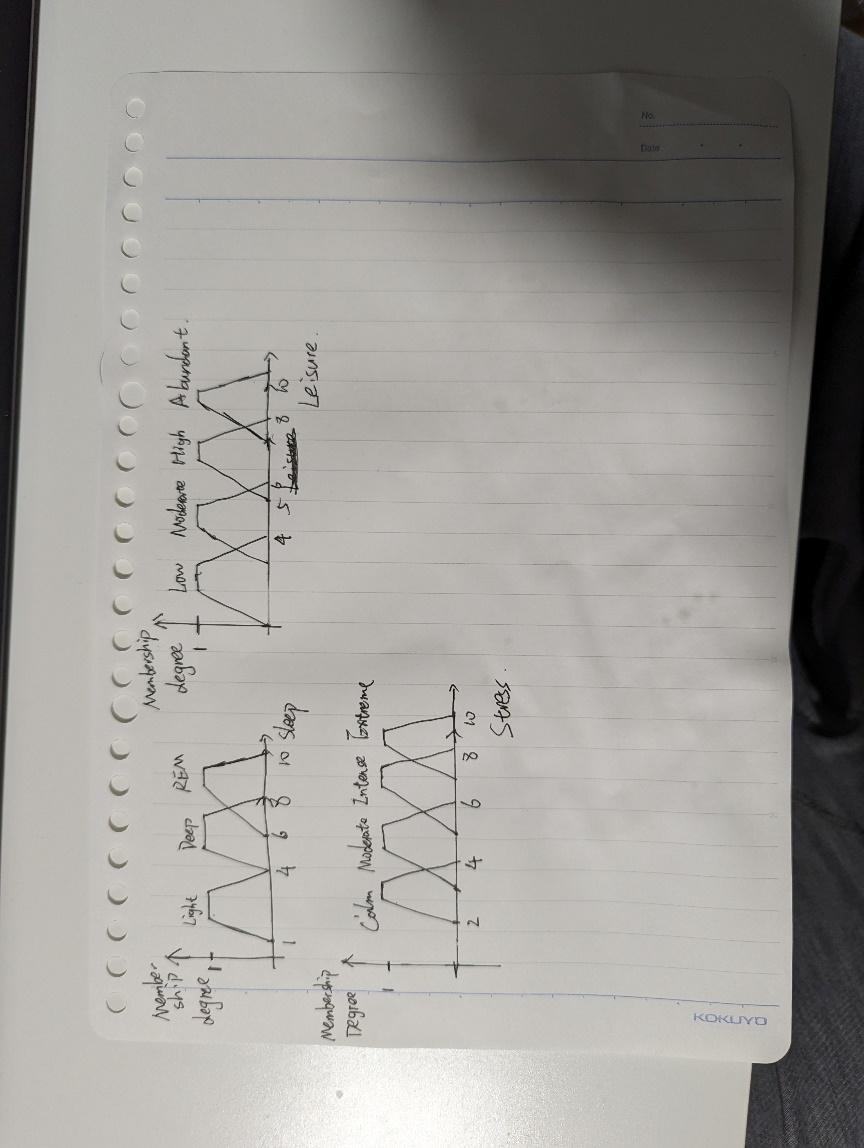 No.
Date
Member
ship
degree
1
Light Deep REM
1 4 6 8 10
Sleep
Membership
degree
1
Low Moderate High Abundant.
4 5 6 8 10
Leisure
Leisure.
Membership
Degree
1
Calm Moderate Intense Extreme
2 4 6 8 10
Stress.
KOKUYO